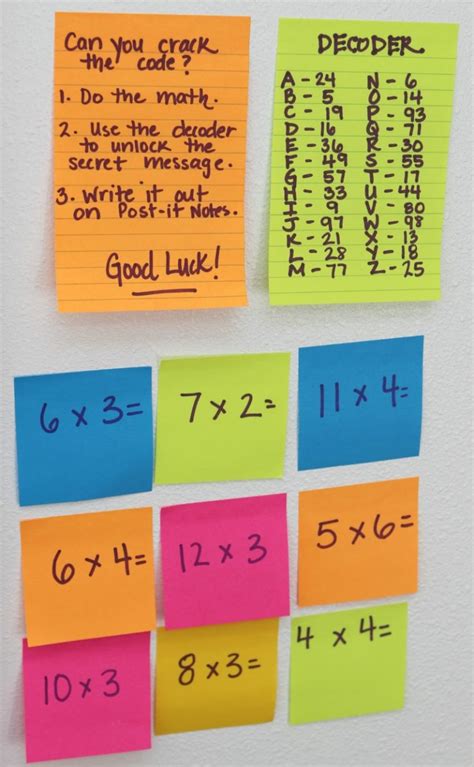 Can you crack
the code?
1. Do the math.
2. Use the decoder
to unlock the
secret message.
3. Write it out
on Post-it Notes.
Good Luck!
DECODER
A - 24 N - 6
B - 5 O - 14
C - 19 P - 93
D - 16 Q - 71
E - 36 R - 30
F - 49 S - 55
G - 57 T - 17
H - 33 U - 44
I - 9 V - 80
J - 97 W - 98
K - 21 X - 13
L - 28 Y - 18
M - 77 Z - 25
6 x 3= 7 x 2= 11 x 4=
6 x 4= 12 x 3 5 x 6=
10 x 3 8 x 3= 4 x 4=